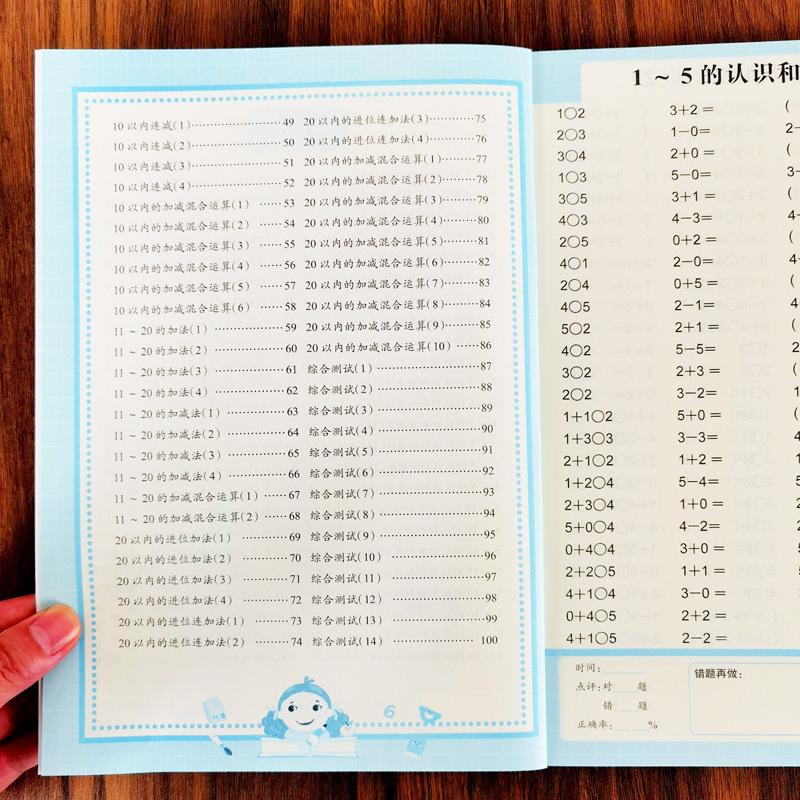 10以内连减(1)……………………49
10以内连减(2)……………………50
10以内连减(3)……………………51
10以内连减(4)……………………52
10以内的加减混合运算(1) ……53
10以内的加减混合运算(2) ……54
10以内的加减混合运算(3) ……55
10以内的加减混合运算(4) ……56
10以内的加减混合运算(5) ……57
10以内的加减混合运算(6) ……58
11～20的加法(1) ………………59
11～20的加法(2) ………………60
11～20的加法(3) ………………61
11～20的加法(4) ………………62
11～20的加减法(1) ……………63
11～20的加减法(2) ……………64
11～20的加减法(3) ……………65
11～20的加减法(4) ……………66
11～20的加减混合运算(1) ……67
11～20的加减混合运算(2) ……68
20以内的进位加法(1) …………69
20以内的进位加法(2) …………70
20以内的进位加法(3) …………71
20以内的进位加法(4) …………72
20以内的进位连加法(1) ………73
20以内的进位连加法(2) ………74
20以内的进位连加法(3)…………75
20以内的进位连加法(4)…………76
20以内的加减混合运算(1)………77
20以内的加减混合运算(2)………78
20以内的加减混合运算(3)………79
20以内的加减混合运算(4)………80
20以内的加减混合运算(5)………81
20以内的加减混合运算(6)………82
20以内的加减混合运算(7)………83
20以内的加减混合运算(8)………84
20以内的加减混合运算(9)………85
20以内的加减混合运算(10) ……86
综合测试(1) ……………………87
综合测试(2) ……………………88
综合测试(3) ……………………89
综合测试(4) ……………………90
综合测试(5) ……………………91
综合测试(6) ……………………92
综合测试(7) ……………………93
综合测试(8) ……………………94
综合测试(9) ……………………95
综合测试(10) …………………96
综合测试(11) …………………97
综合测试(12) …………………98
综合测试(13) …………………99
综合测试(14) …………………100
6
1～5的认识和
1○2 3+2= (
2○3 1－0= 2－
3○4 2+0= (
1○3 5－0= 3+
3○5 3+1= (
4○3 4－3= 4－
2○5 0+2= (
4○1 2－0= 4
2○4 0+5= (
4○5 2－1= 4
5○2 2+1= (
4○2 5－5= 2
3○2 2+3= (
2○2 3－2= 1
1+1○2 5+0= (
1+3○3 3－3= 1
2+1○2 1+2= (
1+2○4 5－4= 2
2+3○4 1+0= (
5+0○4 4－2= 2
0+4○4 3+0= (
2+2○5 1+1= 5
4+1○4 3－0= (
0+4○5 2+2= (
4+1○5 2－2= 5
时间:
点评:对 题
错 题
正确率: %
错题再做: